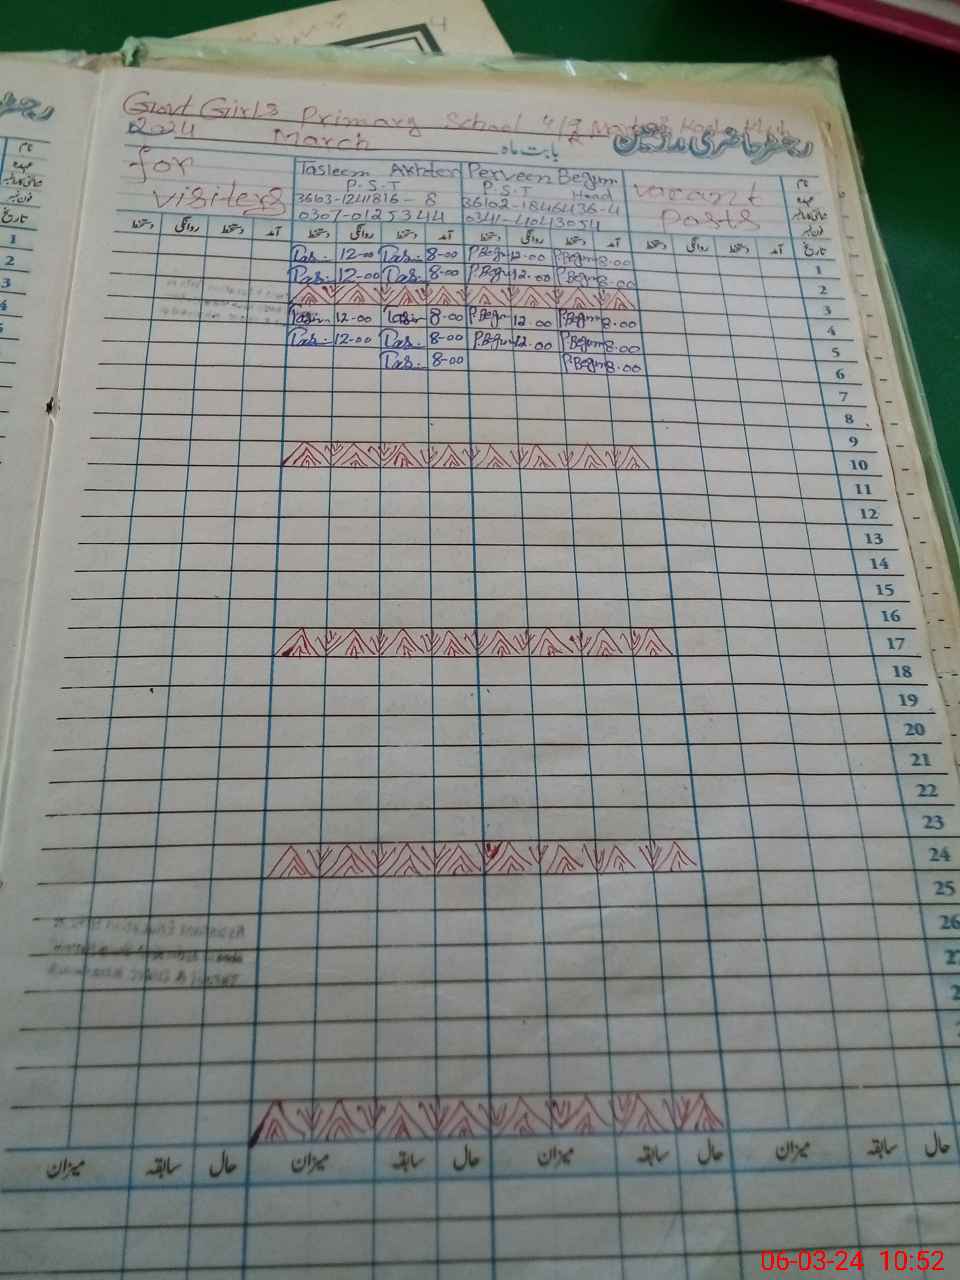 Govt Girls Primary School
2024 March بابت ماہ رجسٹر حاضری مدرسین
for visiters
Tasleem Akhter Perveen Begum vacant posts نام
P.S.T P.S.T Head عہدہ
36103-1241816-8 36102-1846436-4
0307-0125344 0341-41043054 فون نمبر
دستخط روانگی دستخط آمد دستخط روانگی دستخط آمد دستخط روانگی دستخط آمد دستخط روانگی دستخط آمد تاریخ
Tas. 12-00 Tas. 8-00 P.Begum 12.00 P.Begum 8.00 1
Tas. 12-00 Tas. 8-00 P.Begum 12.00 P.Begum 8.00 2
3
12-00 8-00 P.Begum 12.00 P.Begum 8.00 4
Tas. 12-00 Tas. 8-00 P.Begum 12.00 P.Begum 8.00 5
Tas. 8-00 P.Begum 8.00 6
7
8
9
10
11
12
13
14
15
16
17
18
19
20
21
22
23
24
25
26
میزان سابقہ حال میزان سابقہ حال میزان سابقہ حال میزان سابقہ حال
06-03-24 10:52